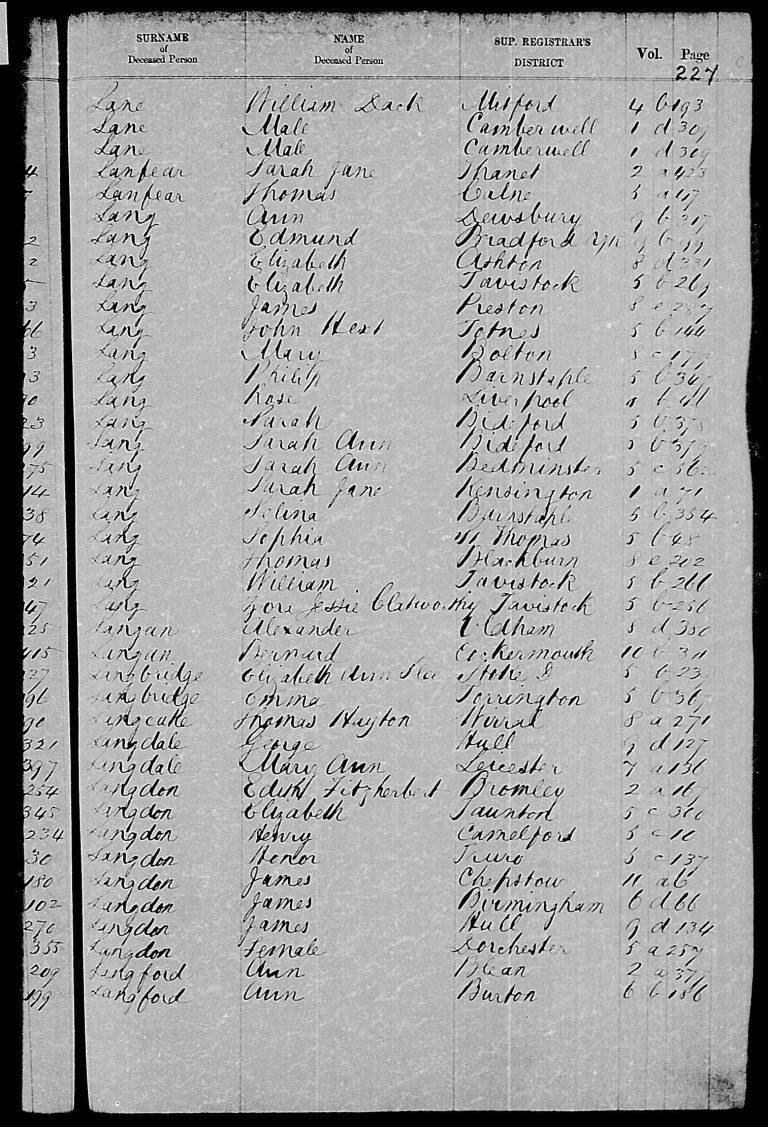 SURNAME of Deceased Person NAME of Deceased Person SUP. REGISTRAR'S DISTRICT Vol. Page
227
Lane William Dack Mitford 4 b 193
Lane Male Camberwell 1 d 309
Lane Male Camberwell 1 d 309
4 Lanfear Sarah Jane Thanet 2 a 423
7 Lanfear Thomas Calne 5 a 47
Lang Ann Dewsbury 9 b 317
2 Lang Edmund Bradford Yk 9 b 99
2 Lang Elizabeth Ashton 8 d 331
5 Lang Elizabeth Tavistock 5 b 269
3 Lang James Preston 8 e 287
66 Lang John Hext Totnes 5 b 144
3 Lang Mary Bolton 8 c 177
93 Lang Philip Barnstaple 5 b 347
90 Lang Rose Liverpool 8 b 41
23 Lang Sarah Bideford 5 b 378
99 Lang Sarah Ann Bideford 5 b 379
275 Lang Sarah Ann Bedminster 5 c 562
14 Lang Sarah Jane Kensington 1 a 71
38 Lang Selina Barnstaple 5 b 354
74 Lang Sophia St Thomas 5 b 48
51 Lang Thomas Blackburn 8 e 202
221 Lang William Tavistock 5 b 261
47 Lang Jessie Clatworthy Tavistock 5 b 256
225 Langan Alexander Oldham 8 d 380
415 Langan Bernard Cockermouth 10 b 311
227 Langbridge Elizabeth Ann Stoke D 5 b 239
96 Langbridge Emma Torrington 5 b 367
90 Langcake Thomas Hayton Wirral 8 a 271
321 Langdale George Hull 9 d 127
397 Langdale Mary Ann Leicester 7 a 136
254 Langdon Edith Fitzherbert Bromley 2 a 167
345 Langdon Elizabeth Taunton 5 c 300
234 Langdon Henry Camelford 5 c 10
30 Langdon Honor Truro 5 c 137
180 Langdon James Chepstow 11 a 6
102 Langdon James Birmingham 6 d 66
270 Langdon James Hull 9 d 134
355 Langdon Female Dorchester 5 a 257
209 Langford Ann Blean 2 a 377
199 Langford Ann Burton 6 b 186